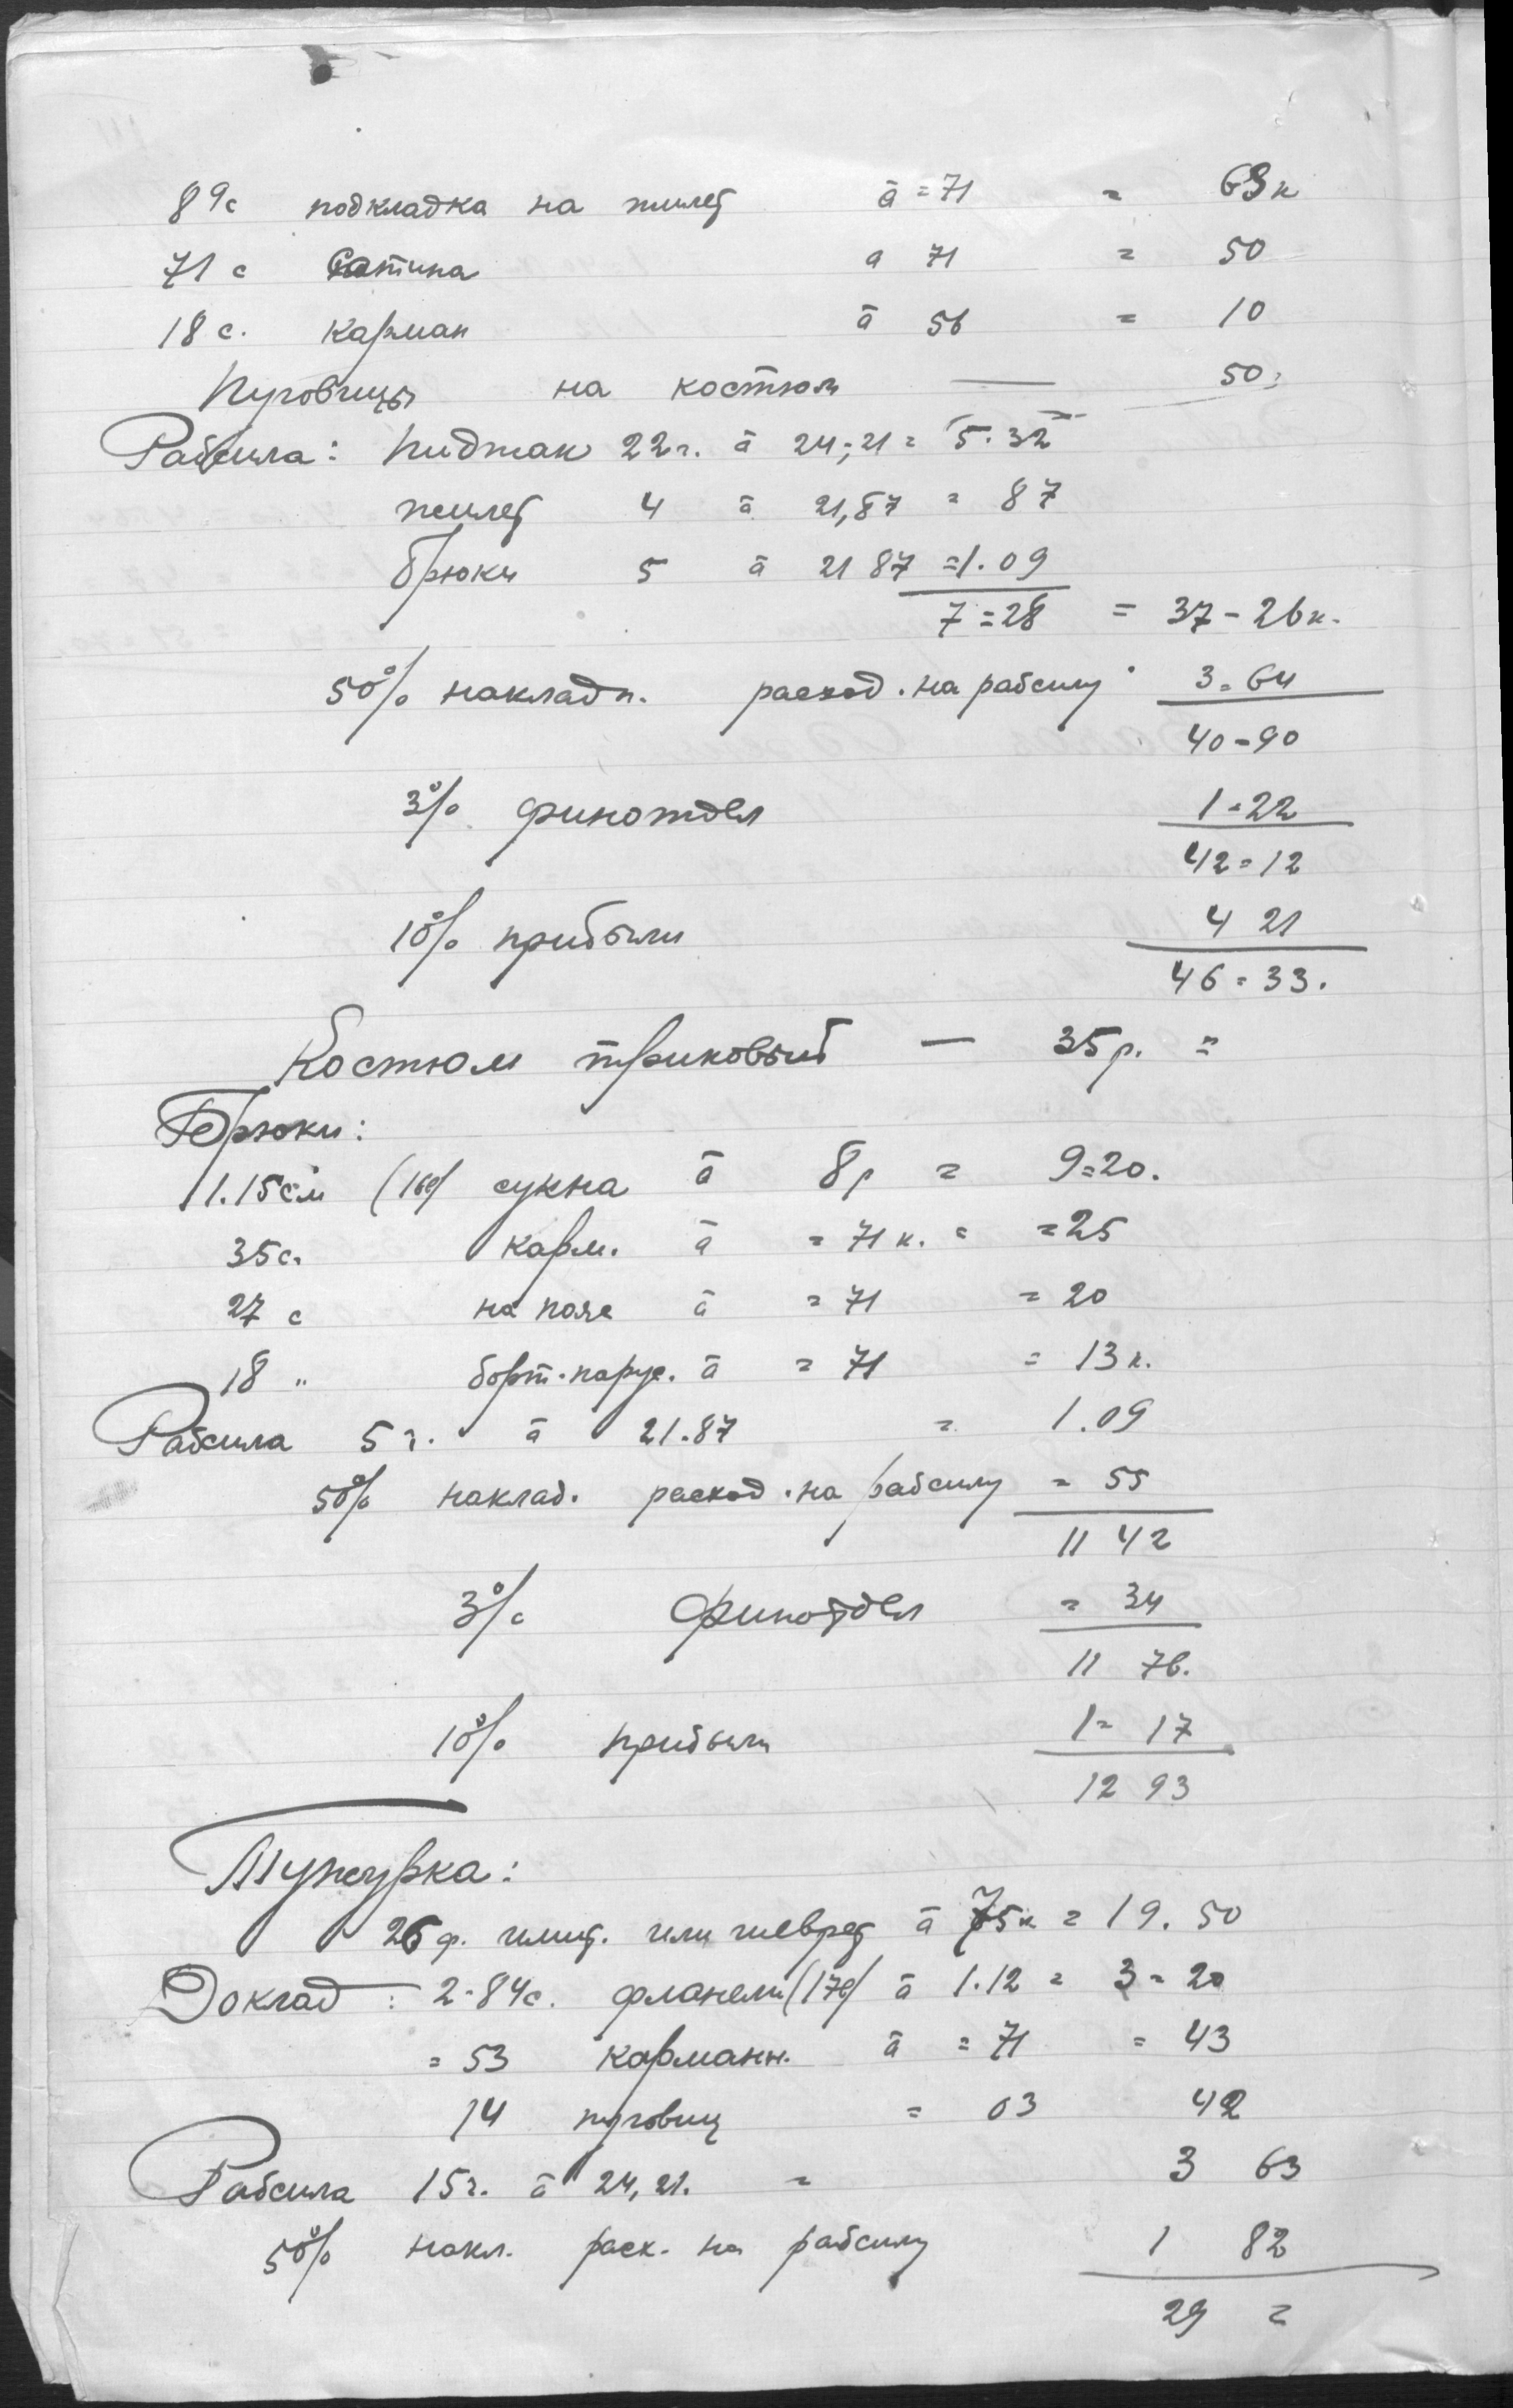 89с подкладка на жилет à = 71 = 63к
71с Сатина а 71 = 50
18с. карман à 56 = 10
Пуговицы на костюм — 50:
Рабсила: Пиджак 22ч. à 24,21 = 5.32
жилет 4 à 21,87 = 87
брюки 5 à 21 87 = 1.09
7=28 = 37-26к.
50% накладн. расход. на рабсилу 3=64
40-90
3% финотдел 1-22
42=12
10% прибыли 4 21
46=33.
Костюм триковый — 35р. =
Брюки:
1.15см (16с) сукна à 8р = 9=20.
35с. карм. à = 71к. = =25
27с на пояс à = 71 = 20
18 " борт.парус. à = 71 = 13к.
Рабсила 5ч. à 21.87 = 1.09
50% наклад. расход. на рабсилу = 55
11 42
3% Финотдел = 34
11 76.
10% прибыли 1= 17
12 93
Тужурка:
26ф. или шеврет à 75к = 19.50
Доклад: 2-84с. фланели (17с) à 1.12 = 3=20
= 53 карманн. à = 71 = 43
14 пуговиц = 03 42
Рабсила 15ч. à 24,21. = 3 63
50% накл. расх. на рабсилу 1 82
29 =